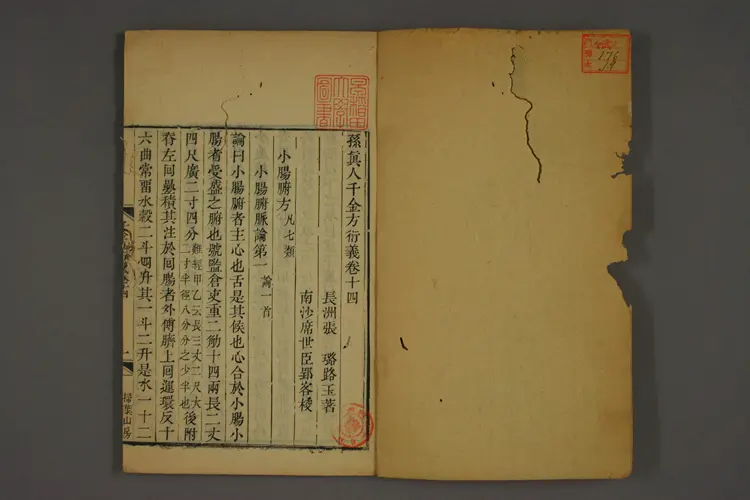 孫眞人千金方衍義卷十四
長洲張　璐路玉著
南沙席世臣郢客校
小腸腑方凡七類
小腸腑脈論第一論一首
論曰小腸腑者主心也舌是其候也心合於小腸小
腸者受盛之腑也號監倉吏重二觔十四兩長二丈
四尺廣二寸四分難經甲乙云長三丈二尺大二寸半徑八分分之少半也後附
脊左囘疊積其注於囘腸者外傅臍上囘運環反十
六曲常畱水穀二斗四升其一斗二升是水一十二
掃葉山房
一
早稻田大學圖書